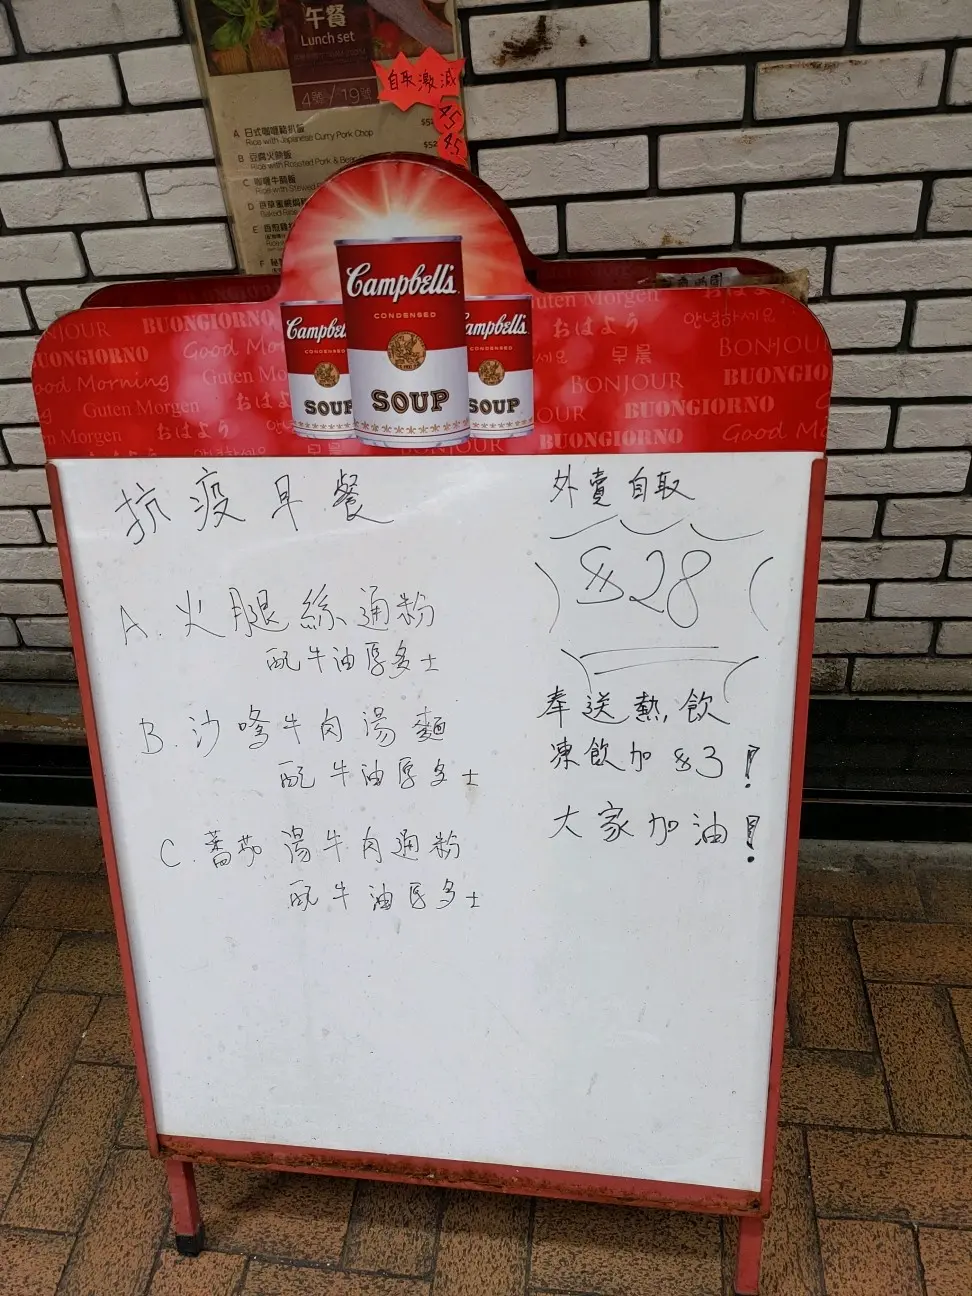 午餐
Lunch set
4號 / 19號
自取激減
$5
$5
A 日式咖喱豬扒飯
Rice with Japanese Curry Pork Chop
B 豆腐火腩飯
Rice with Roasted Pork & Bean
C 咖喱牛腩飯
Rice with Stewed
D
Baked Rice
E
F
Campbell's
CONDENSED
SOUP
Campbell's
CONDENSED
SOUP
Campbell's
CONDENSED
SOUP
BONJOUR BUONGIORNO
BUONGIORNO Good Mo
Good Morning Guten M
Guten Morgen おはよ
Guten Morgen おはよう
Guten Morgen
おはよう 안녕하세요
早晨 BONJOUR
BONJOUR BUONGIO
BUONGIORNO
BUONGIORNO Good Mo
BONJOUR
抗疫早餐
A. 火腿絲通粉
配牛油厚多士
B. 沙嗲牛肉湯麵
配牛油厚多士
C. 蕃茄湯牛肉通粉
配牛油厚多士
外賣自取
$28
奉送熱飲
凍飲加$3!
大家加油!